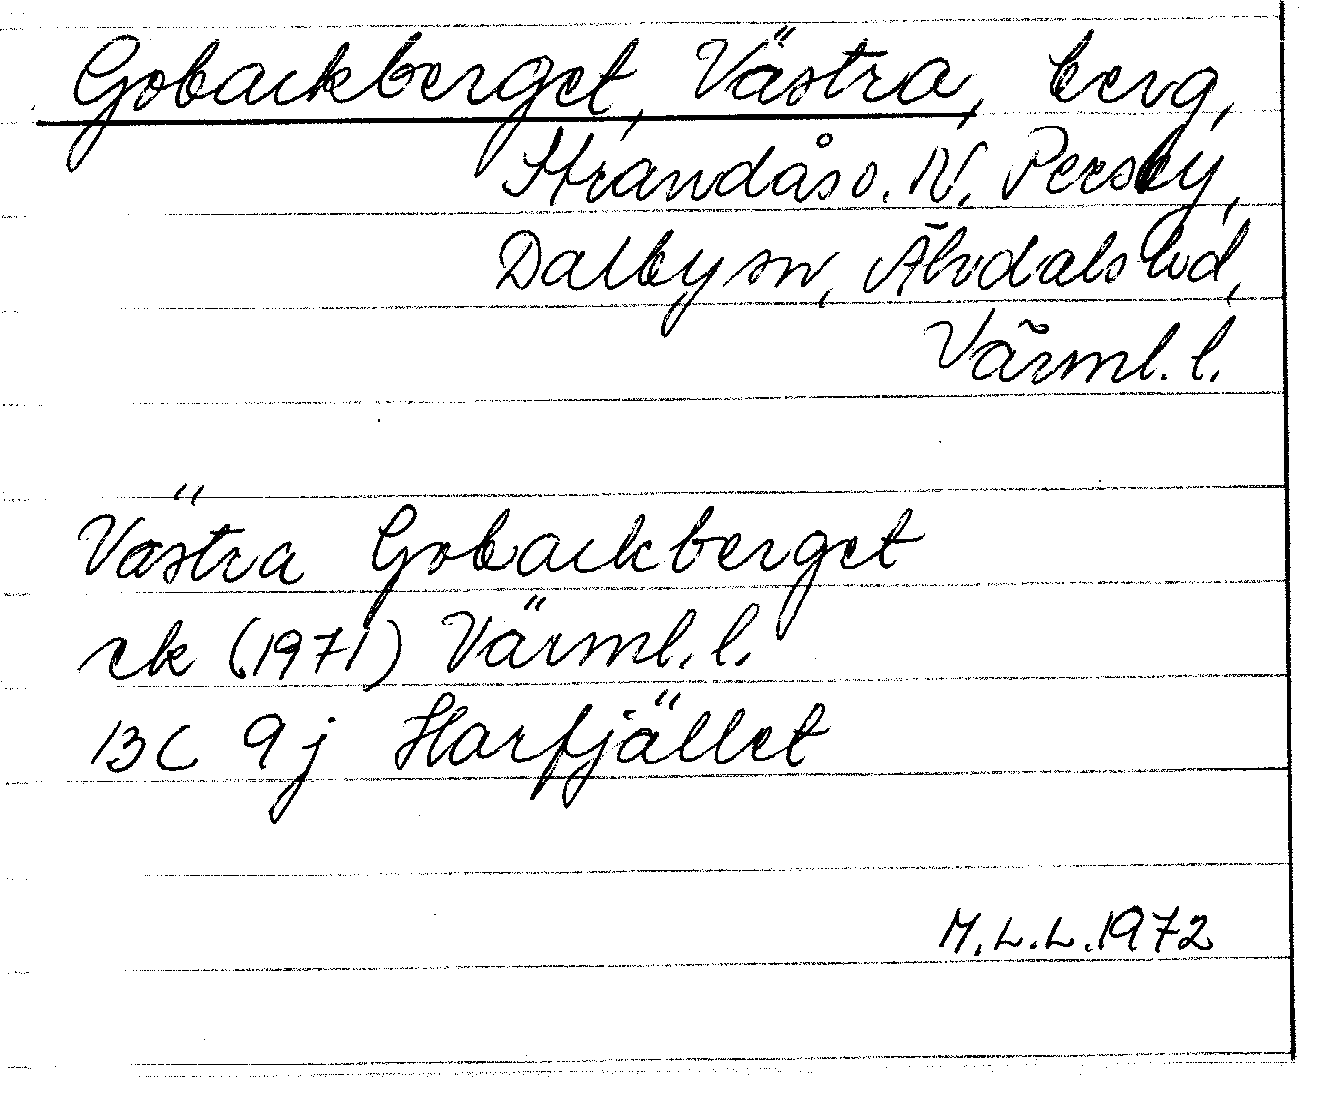 Gobackberget, Västra, berg,
Strandås o. N. Persby,
Dalby sn, Älvdals hd,
Värml. l.
Västra Gobackberget
rk (1971) Värml. l.
13C 9j Harfjället
M.L.L. 1972